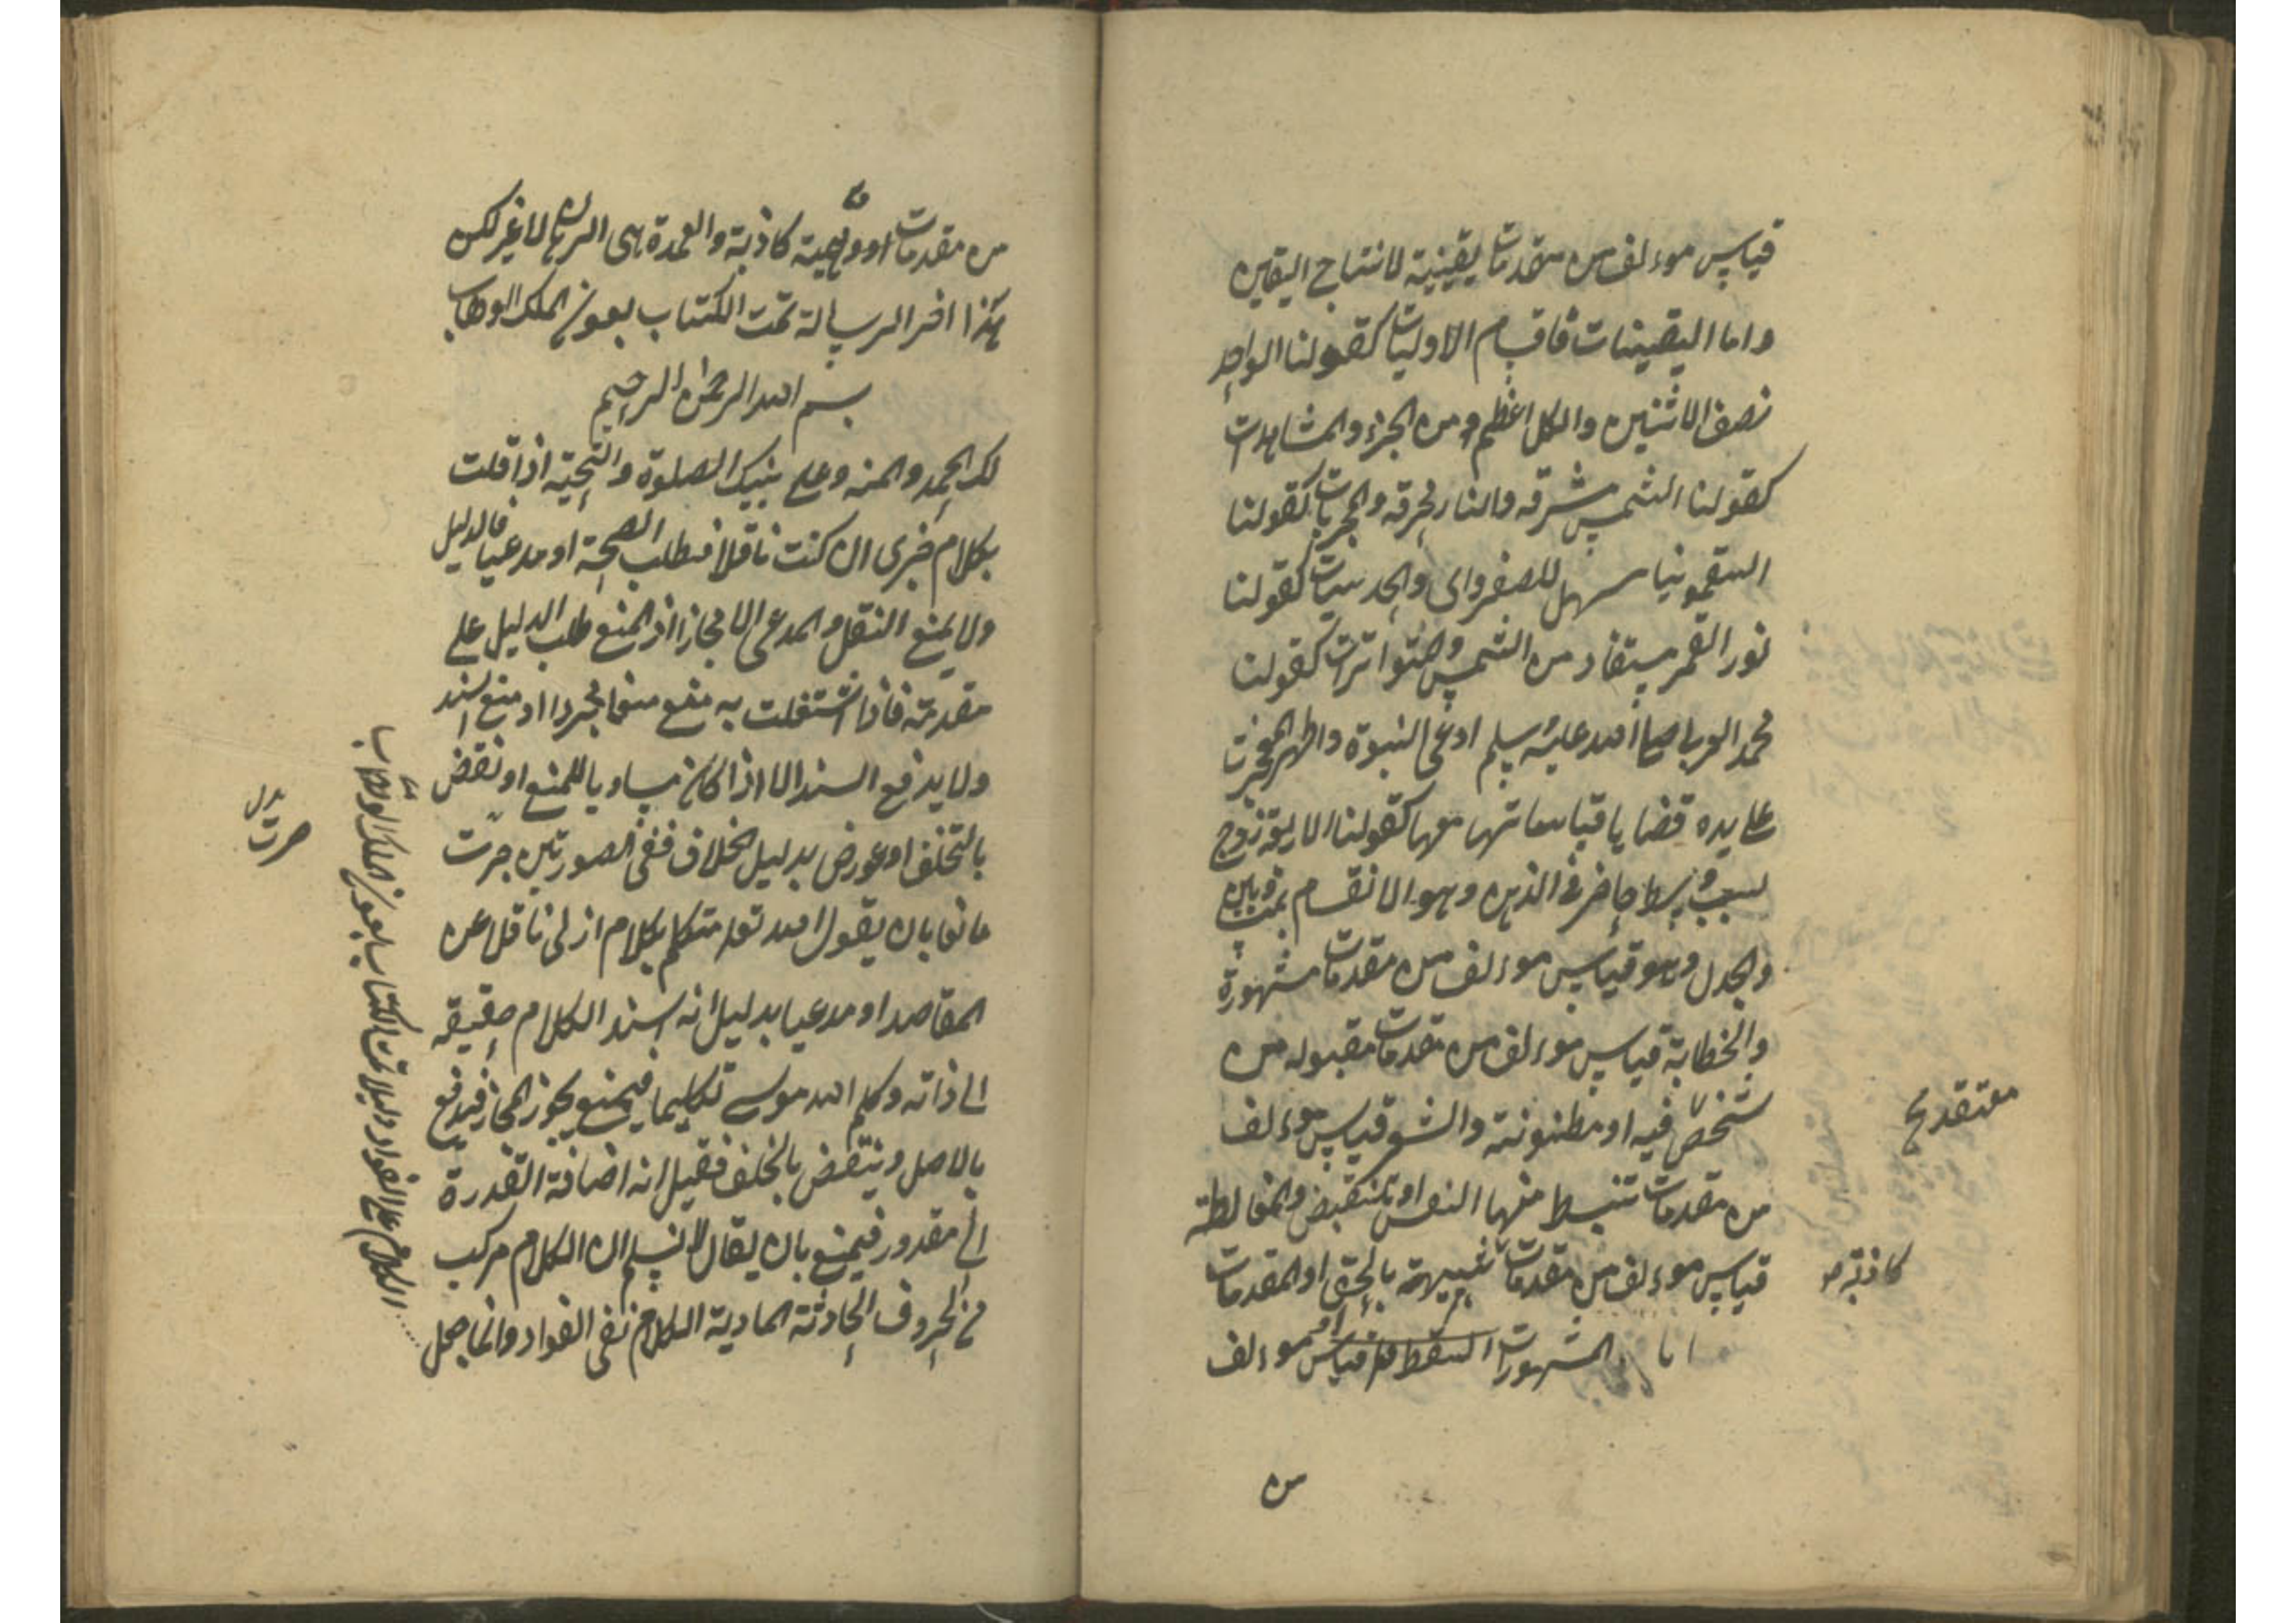 قياس موءلف من مقدمات يقينية لانتاج اليقين
واما اليقينيات فاقسام الاوليات كقولنا الواحد
نصف الاثنين والكل اعظم من الجزء والمشاهدات
كقولنا الشمس مشرقه والنار محرقه والمجربات كقولنا
السقمونيا مسهل للصفراوى والحدسيات كقولنا
نور القمر مستفاد من الشمس والمتواترات كقولنا
محمد العربى صلى الله عليه وسلم ادعى النبوة واظهر المعجزت
على يده قضايا قياساتها معها كقولنا الاربعة زوج
لسبب وسط حاضر فى الذهن وهو الانقسام بمتساويين
والجدل وهو قياس موءلف من مقدمات مشهورة
والخطابة قياس موءلف من مقدمات مقبوله من
شخص فيه او مظنونة والشعر قياس موءلف
معتقد
من مقدمات تنبسط منها النفس او تنقبض والمغالطة
قياس موءلف من مقدمات شبيهة بالحق او المقدمات
كاذبة
المشهورات قياس موءلف
من
من مقدمات او وهمية كاذبة والعمدة هى البرهان لا غير لكن
هذا اخر الرسالة تمت الكتاب بعون الملك الوهاب
بسم الله الرحمن الرحيم
لك الحمد والمنه وعلى نبيك الصلوة والتحية اذا قلت
بكلام خبرى ان كنت ناقلا فيطلب الصحة او مدعيا فالدليل
ولا يمنع النقل والمدعى الا مجازا اذ المنع طلب الدليل على
مقدمته فاذا اشتغلت به منع منعا مجردا او مع السند
ولا يدفع السند الا اذا كان مساويا للمنع او نقض
بالتخلف او عورض بدليل الخلاف ففى الصورتين جرت
صرت بدل
مانعا بان يقول الله تعالى متكلم بكلام ازلى ناقلا عن
المقاصد او مدعيا بدليل انه اسند الكلام حقيقه
الى ذاته وكلم الله موسى تكليما فيمنع بجواز المجاز فيدفع
بالاصل وينتقض بالخلف فقيل انه اضافة القدرة
الى مقدور فيمنع بان يقال لا نسلم ان الكلام مركب
من الحروف الحادثة المادية الكلام نفى الفواد وانما جعل
الكلام على الفواد دليلا تمت الكتاب بعون الملك الوهاب